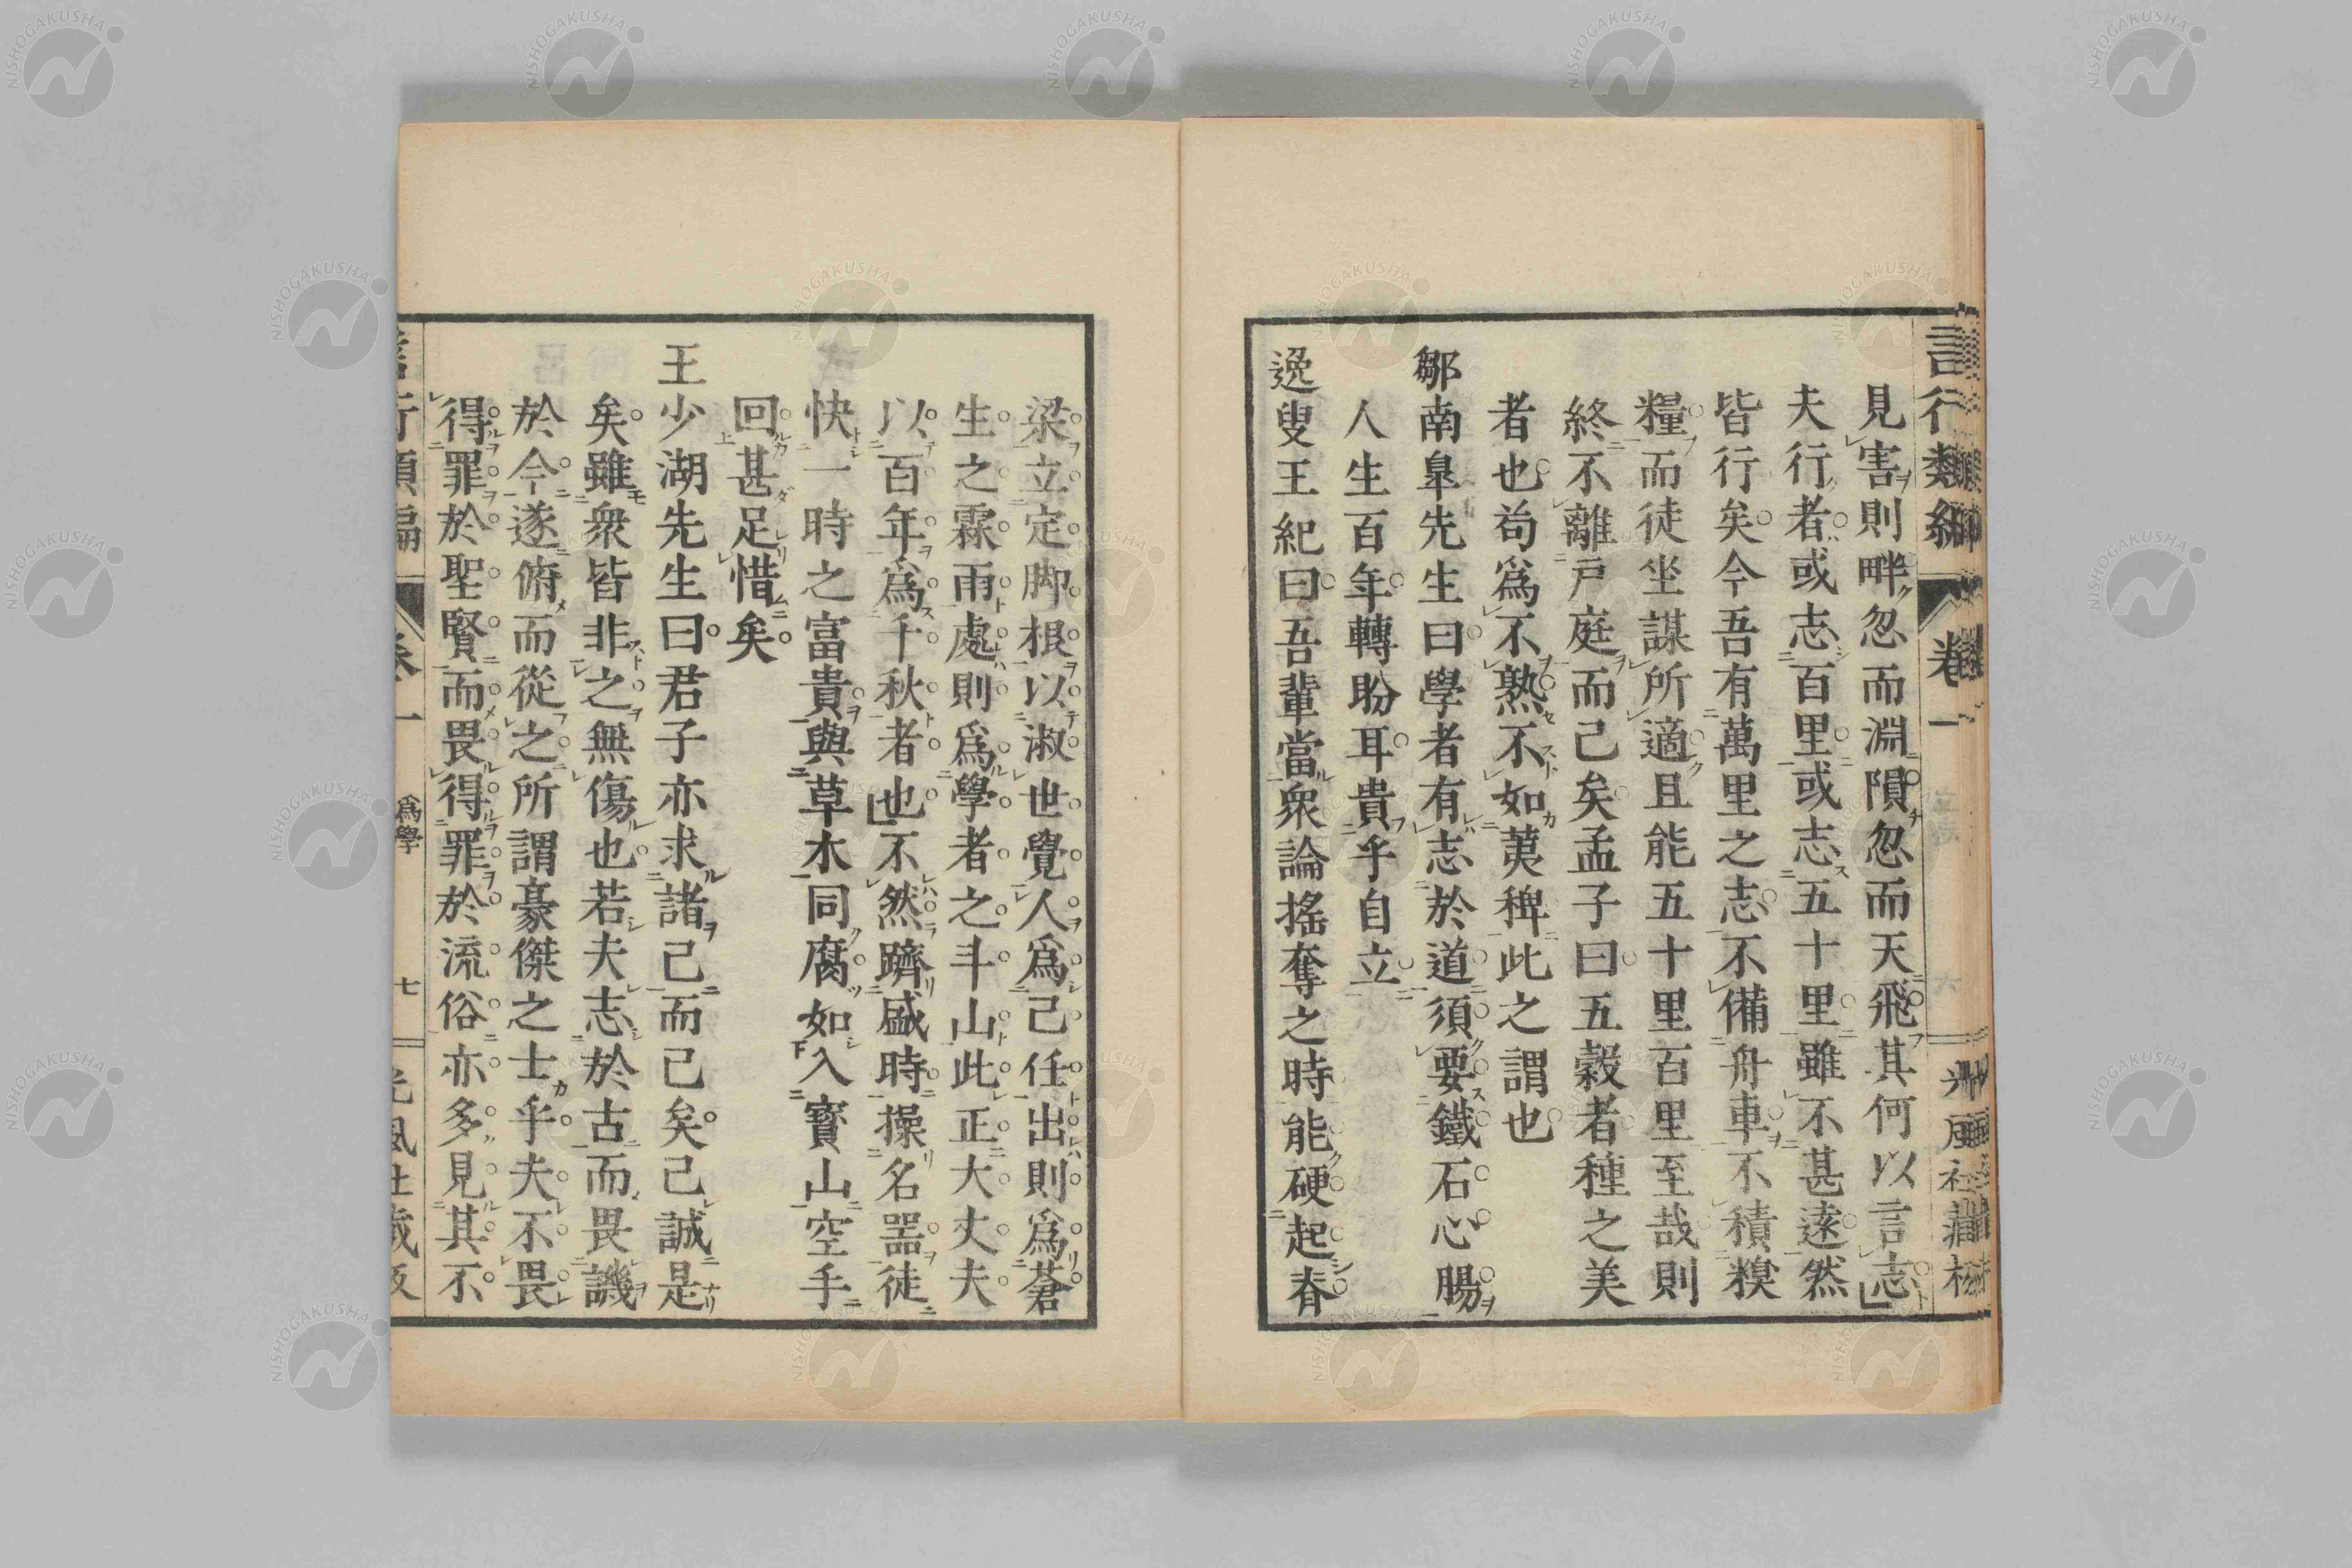 言行類編 卷一
見害則畔忽而淵隕忽而天飛其何以言志
夫行者或志百里或志五十里雖不甚遠然
皆行矣今吾有萬里之志不備舟車不積糗
糧而徒坐謀所適且能五十里百里至哉則
終不離戸庭而已矣孟子曰五穀者種之美
者也苟爲不熟不如荑稗此之謂也
鄒南臯先生曰學者有志於道須要鐵石心腸
人生百年轉盻耳貴乎自立
逸叟王紀曰吾輩當衆論搖奪之時能硬起脊
梁立定脚根以淑世覺人爲己任出則爲蒼
生之霖雨處則爲學者之斗山此正大丈夫
以百年爲千秋者也不然躋盛時操名器徒
快一時之富貴與草木同腐如入寳山空手
回甚足惜矣
王少湖先生曰君子亦求諸己而已矣己誠是
矣雖衆皆非之無傷也若夫志於古而畏譏
於今遂俯而從之所謂豪傑之士乎夫不畏
得罪於聖賢而畏得罪於流俗亦多見其不
言行類編 卷一 爲學 七 光風社蔵版
NISHOGAKUSHA